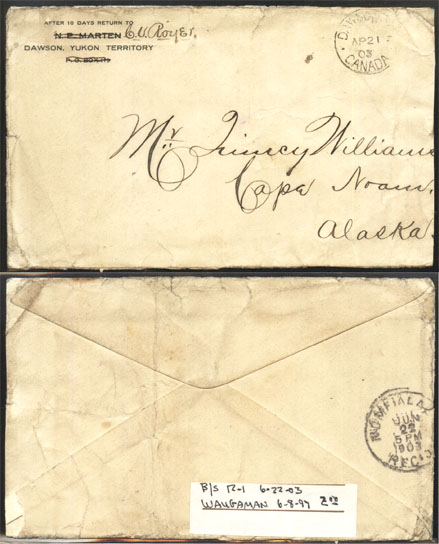 AFTER 10 DAYS RETURN TO
N. F. MARTEN C.W. Royer.
DAWSON, YUKON TERRITORY
P. O. BOX
AP 21
03
CANADA
Mr. Quincy Williams
Cape Noam.
Alaska.
NOME, ALA
JUN
22
5 PM
1903
REC'D
B/S R-1 6-22-03
WAUGAMAN 6-8-97 2 00